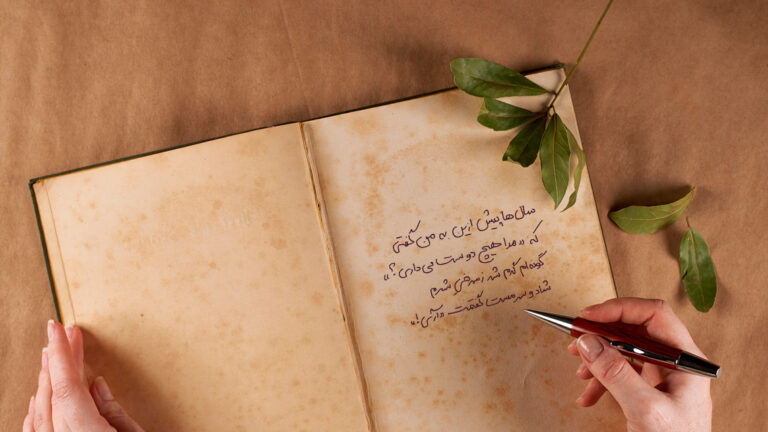 سال ها پیش ازین به من گفتی
که «مرا هیچ دوست می داری؟»
گونه ام گرم شد ز سرخی شرم
شاد و سرمست گفتمت «آری!»